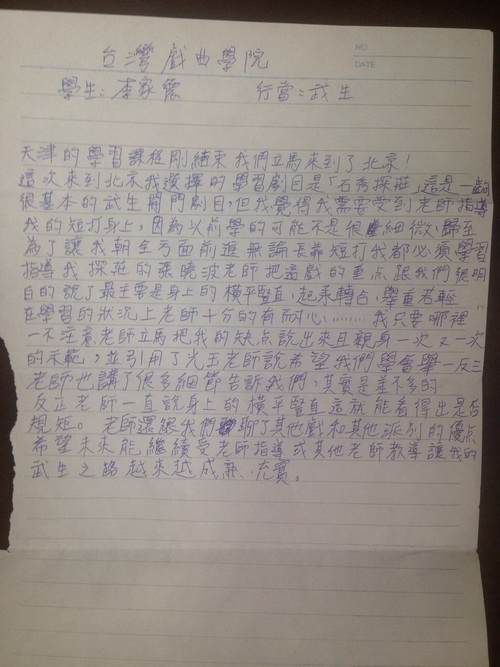 台灣戲曲學院
NO
DATE
學生:李家德 行當:武生
天津的學習課程剛結束我們立馬來到了北京!
這次來到北京我選擇的學習劇目是「石秀探莊」這是一齣
很基本的武生開門劇目,但我覺得我需要受到老師指導
我的短打身上,因為以前學的可能不是很細微,歸至
為了讓我朝全方面前進無論長靠短打我都必須學習
指導我探莊的張曉波老師把這戲的重點跟我們很明
白的說了最主要是身上的橫平豎直,起承轉合,舉重若輕
在學習的狀況上老師十分的有耐心………我只要哪裡
一不注意老師立馬把我的缺点說出來且親身一次又一次
的示範,並引用了王老師說希望我們學會舉一反三
老師也講了很多細節告訴我們,其實是差不多的
反正老師一直說身上的橫平豎直這就能看得出是否
規矩。老師還跟我們聊了其他戲和其他派別的優点
希望未來能繼續受老師指導或其他老師教導讓我的
武生之路越來越成熟、充實。